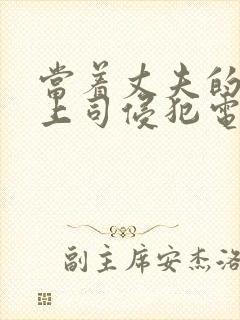 當着丈夫的
上司侵犯電
副主席安杰洛